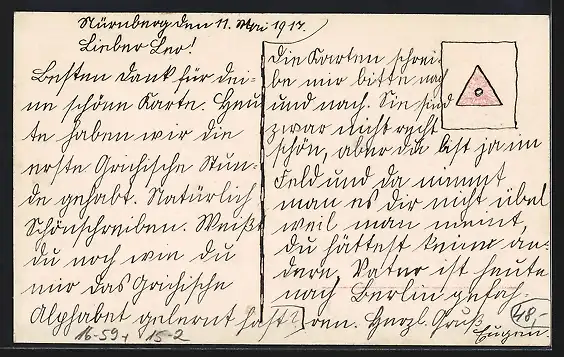 Nürnberg den 11. Mai 1917.
Lieber Leo!
Besten Dank für dei-
ne schöne Karte. Heu
te haben wir die
erste Grichische Stun-
de gehabt. Natürlich
Schönschreiben. Weißt
du noch wie du
mir das Grichische
Alphabet gelernt hast?
Die Karten schrei-
be mir bitte nach
und nach. Sie sind
zwar nicht recht
schön, aber du bist ja im
Feld und da nimmt
man es dir nicht übel
weil man meint,
du hättest keine an-
dern. Vater ist heute
nach Berlin gefah-
ren. Herzl. Gruß
Eugen.
48,-
16-59+ 15-2